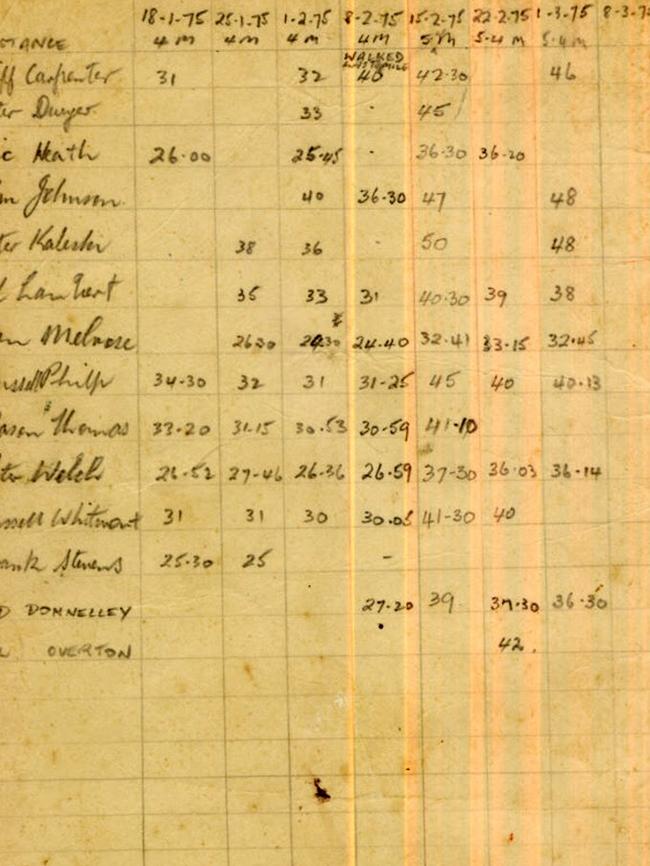 18-1-75 25-1-75 1-2-75 8-2-75 15-2-75 22-2-75 1-3-75 8-3-7
TANCE 4 M 4 M 4 M 4 M 5 M 5.4 M 5.4 M
WALKED
ff Carpenter 31 32 40 42.30 46
ter Dwyer 33 - 45
c Heath 26.00 25.45 - 36.30 36-20
n Johnson 40 36.30 47 48
ter 38 36 - 50 48
Lambert 35 33 31 40.30 39 38
n Melrose 26 30 24.40 32.41 33.15 32.45
ussell Philp 34-30 32 31 31-25 45 40 40.13
ason Thomas 33-20 31.15 30.53 30-59 41-10
ter Welch 26-52 27-46 26-36 26.59 37-30 36.03 36-14
ssell Whitmont 31 31 30 30.05 41-30 40
ank Stevens 25.30 25 -
D DONNELLEY 27-20 39 37.30 36.30
OVERTON 42.